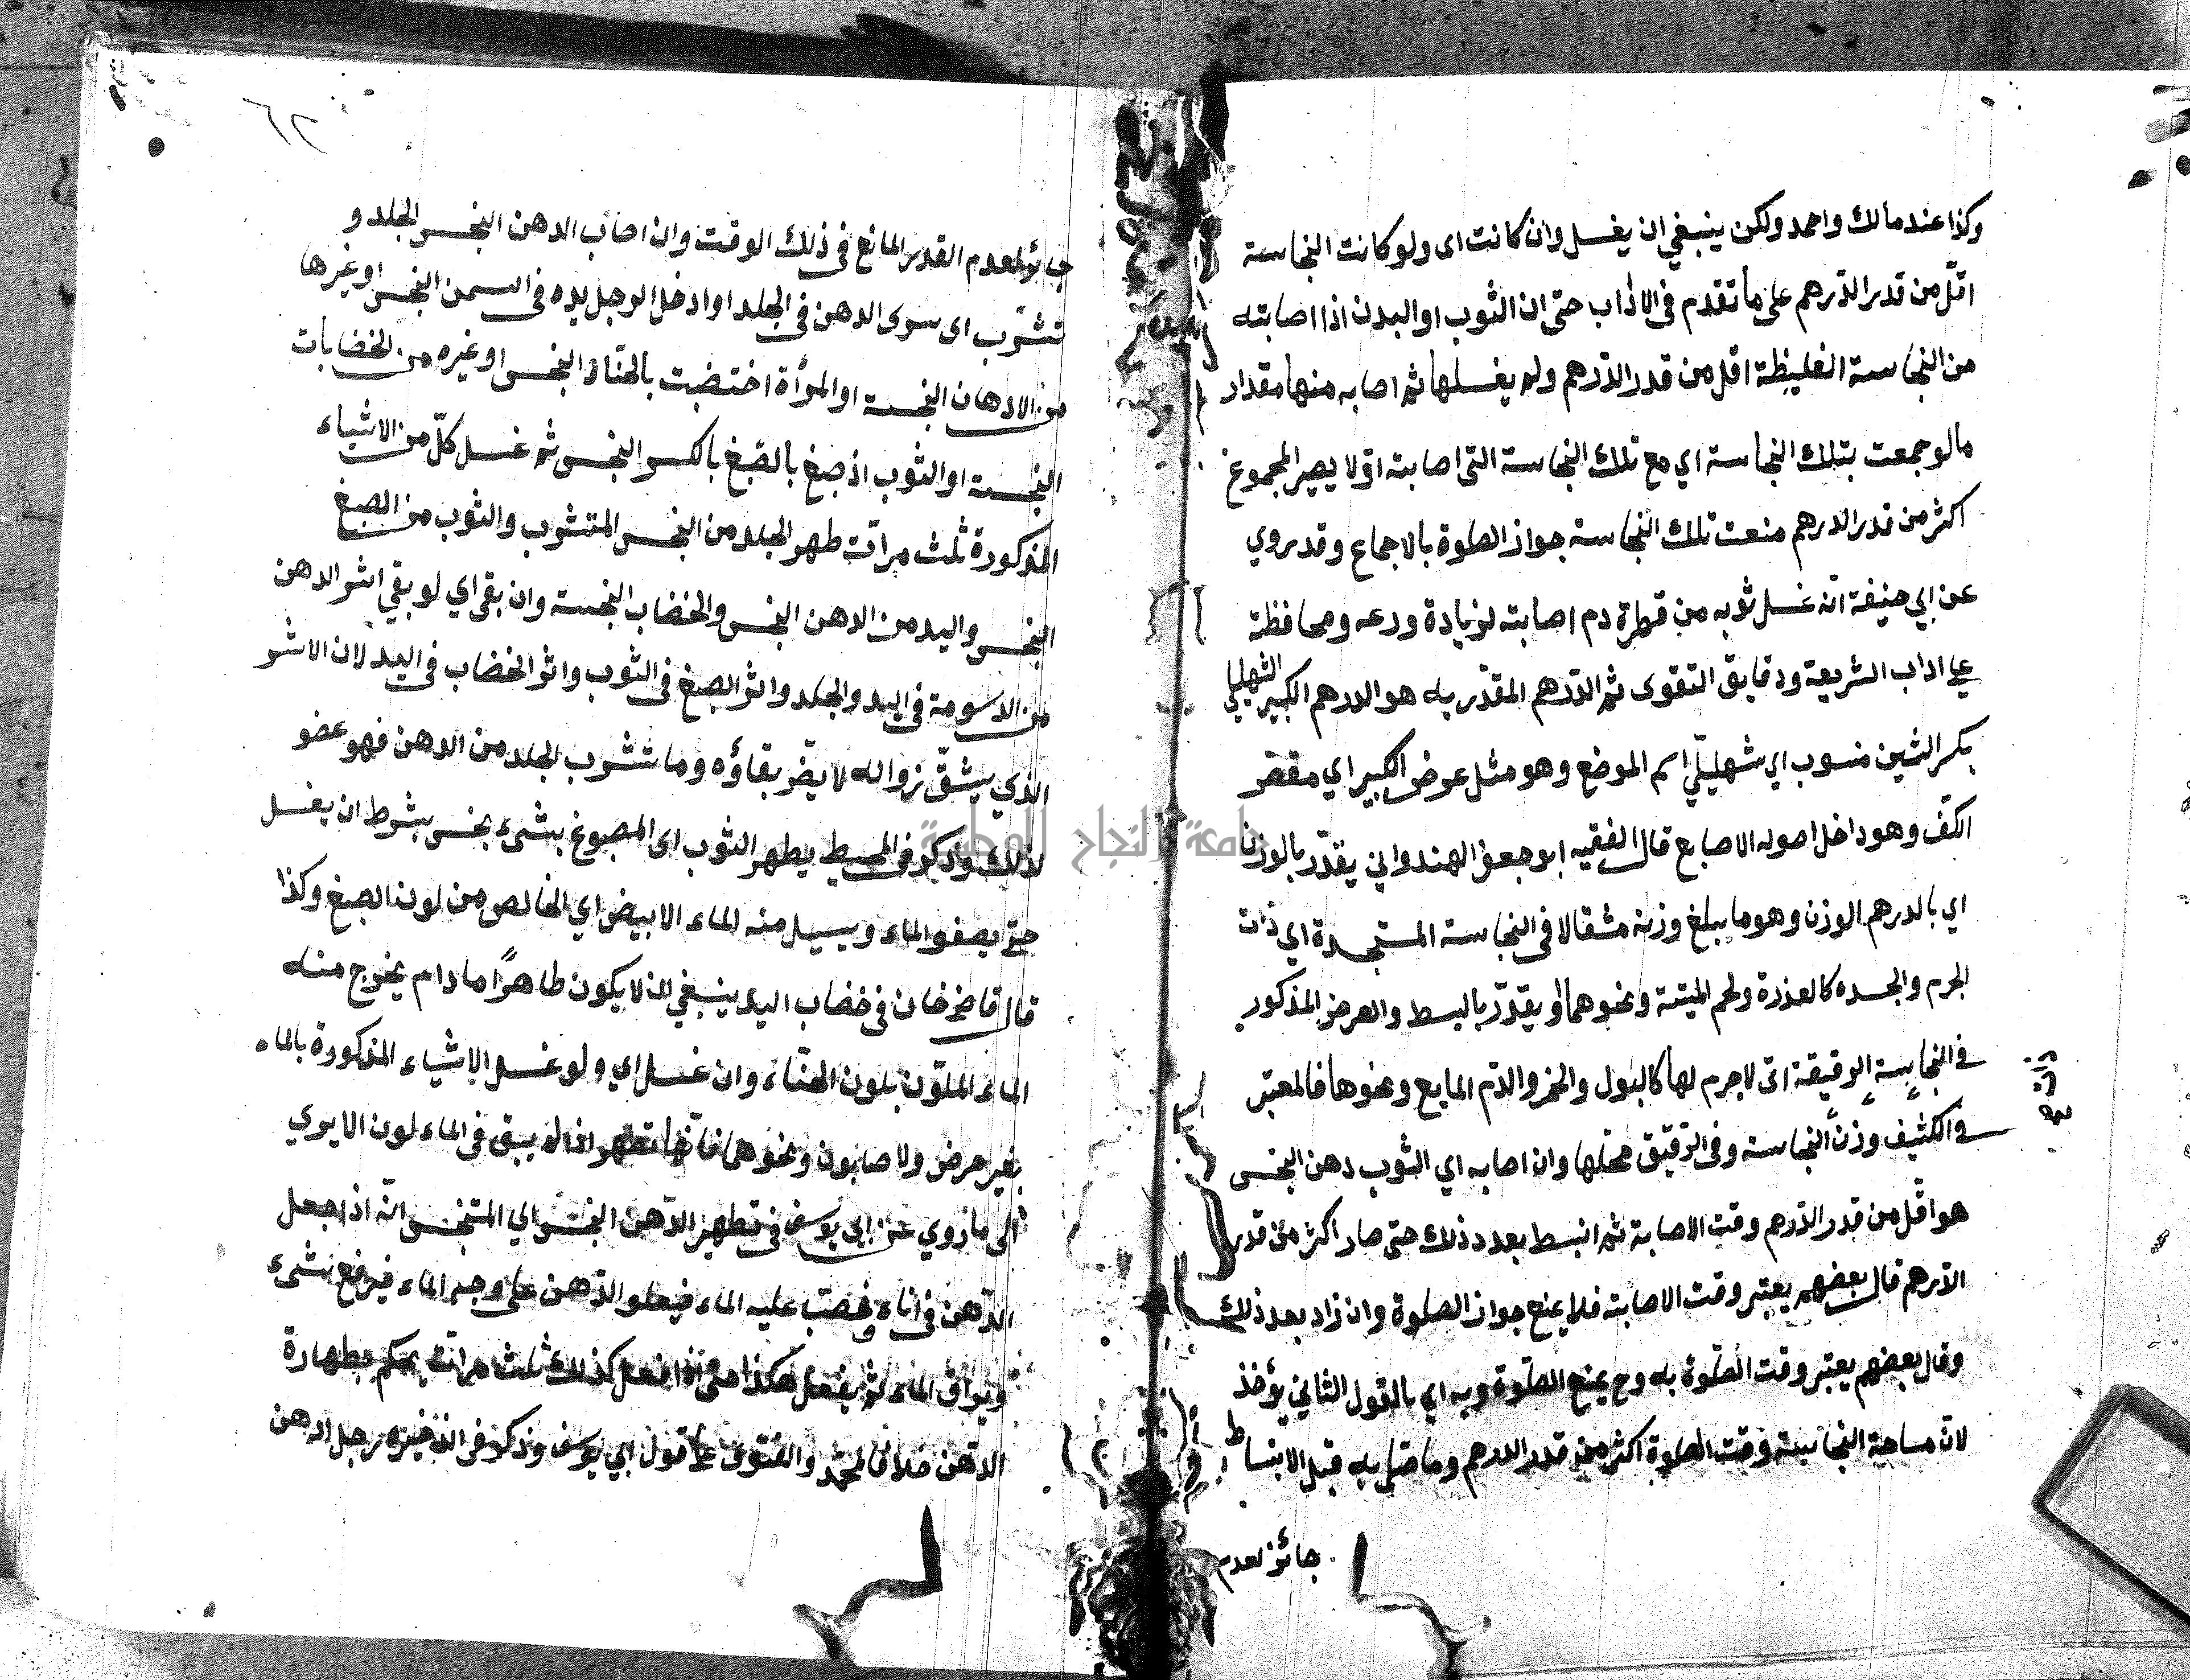 وكذا عند مالك واحمد ولكن ينبغي ان يغسل وان كانت اى ولو كانت النجاسة
اقلّ من قدر الدّرهم على ما تقدم في الاداب حتى ان الثوب او البدن اذا اصابته
من النجاسة الغليظة اقل من قدر الدّرهم ولم يغسلها ثم اصابه منها مقدار
ما لو جمعت بتلك النجاسة اي مع تلك النجاسة التى اصابته اوّلا يصير المجموع
اكثر من قدر الدرهم منعت تلك النجاسة جواز الصلوة بالاجماع وقد روي
عن ابي حنيفة انّه غسل ثوبه من قطرة دم اصابته لزيادة ورعه ومحافظة
على اداب الشريعة ودقايق التقوى ثم الدّرهم المقدّر به هو الدرهم الكبير الشهليلي
بكسر الشين منسوب الي شهليلي اسم الموضع وهو مثل عرض الكبير اي مقعر
الكفّ وهو داخل اصوله الاصابع قال الفقيه ابو جعفر الهندواني يقدّر بالوزن
اي بالدرهم الوزن وهو ما يبلغ وزنه مثقالا في النجاسة المتجسدة اي ذات
الجرم والجسده كالعذرة ولحم الميتة ونحوهما ويقدّر بالبسط والعرض المذكور
في النجاسة الرقيقة التى لاجرم لها كالبول والخمر والدّم المايع ونحوها فالمعتبر
في الكثيف وزن النجاسة وفي الرّقيق محلّها وان اصابه اي الثوب دهن النجس
هو اقلّ من قدر الدّرهم وقت الاصابة ثم انبسط بعد ذلك حتى صار اكثر من قدر
الدّرهم قال بعضهم يعتبر وقت الاصابة فلا يمنع جواز الصلوة وان زاد بعد ذلك
وقال بعضهم يعتبر وقت الصّلوة به وح يمنع الصّلوة وبه اي بالقول الثاني يؤخذ
لانّ مساحة النجاسة وقت الصلوة اكثر من قدر الدرهم وما صلى به قبل الانبساط
جائز لعدم
٦٢
جائز لعدم القدر المانع في ذلك الوقت وان اصاب الدهن النجس الجلد و
تشرّب اى سرى الدهن في الجلد او ادخل الرجل يده في السمن النجس او غيرها
من الادهان النجسة او المرأة اختضبت بالحنّاء النجس او غيره من الخضابات
النجسة او الثوب اذ صبغ بالصّبغ بالكسر النجس ثم غسل كلّ من الاشياء
المذكورة ثلث مرات طهر الجلد من النجس المتشرب والثوب من الصبغ
النجس واليد من الدهن النجس والخضاب النجسة وان بقى اي لو بقي اثر الدهن
من الدسومة في اليد والجلد واثر الصبغ في الثوب واثر الخضاب في اليد لان الاثر
الذي يشقّ زواله لا يضرّ بقاؤه وما تشرب الجلد من الدهن فهو عضو
لذلك وذكر في المحيط يطهر الثوب اى المصبوغ بشىء نجس بشرط ان يغسل
حتى يصفو الماء ويسيل منه الماء الابيض اي الخالص من لون الصبغ وكذا
قال قاضى خان في خضاب اليد ينبغي ان لا يكون طاهرًا ما دام يخرج منه
الماء الملوّن بلون الحنّاء وان غسل اي ولو غسل الاشياء المذكورة بالماء
بغير حرض ولا صابون ونحوهما فانها تطهر اذا لم يبق في الماء لون الا يري
الى ما روي عن ابي يوسف في تطهير الدّهن النجس اي المتنجس انّه اذا جعل
الدّهن في اناء فصبّ عليه الماء فيعلو الدّهن على وجه الماء فيرفع بشىء
ويراق الماء ثم يفعل هكذا حتى اذا فعل كذلك ثلث مرات يحكم بطهارة
الدّهن خلافا لمحمّد والفتوى على قول ابي يوسف وذكر في الذخيرة رجل ادهن
جامعة النجاح الوطنية